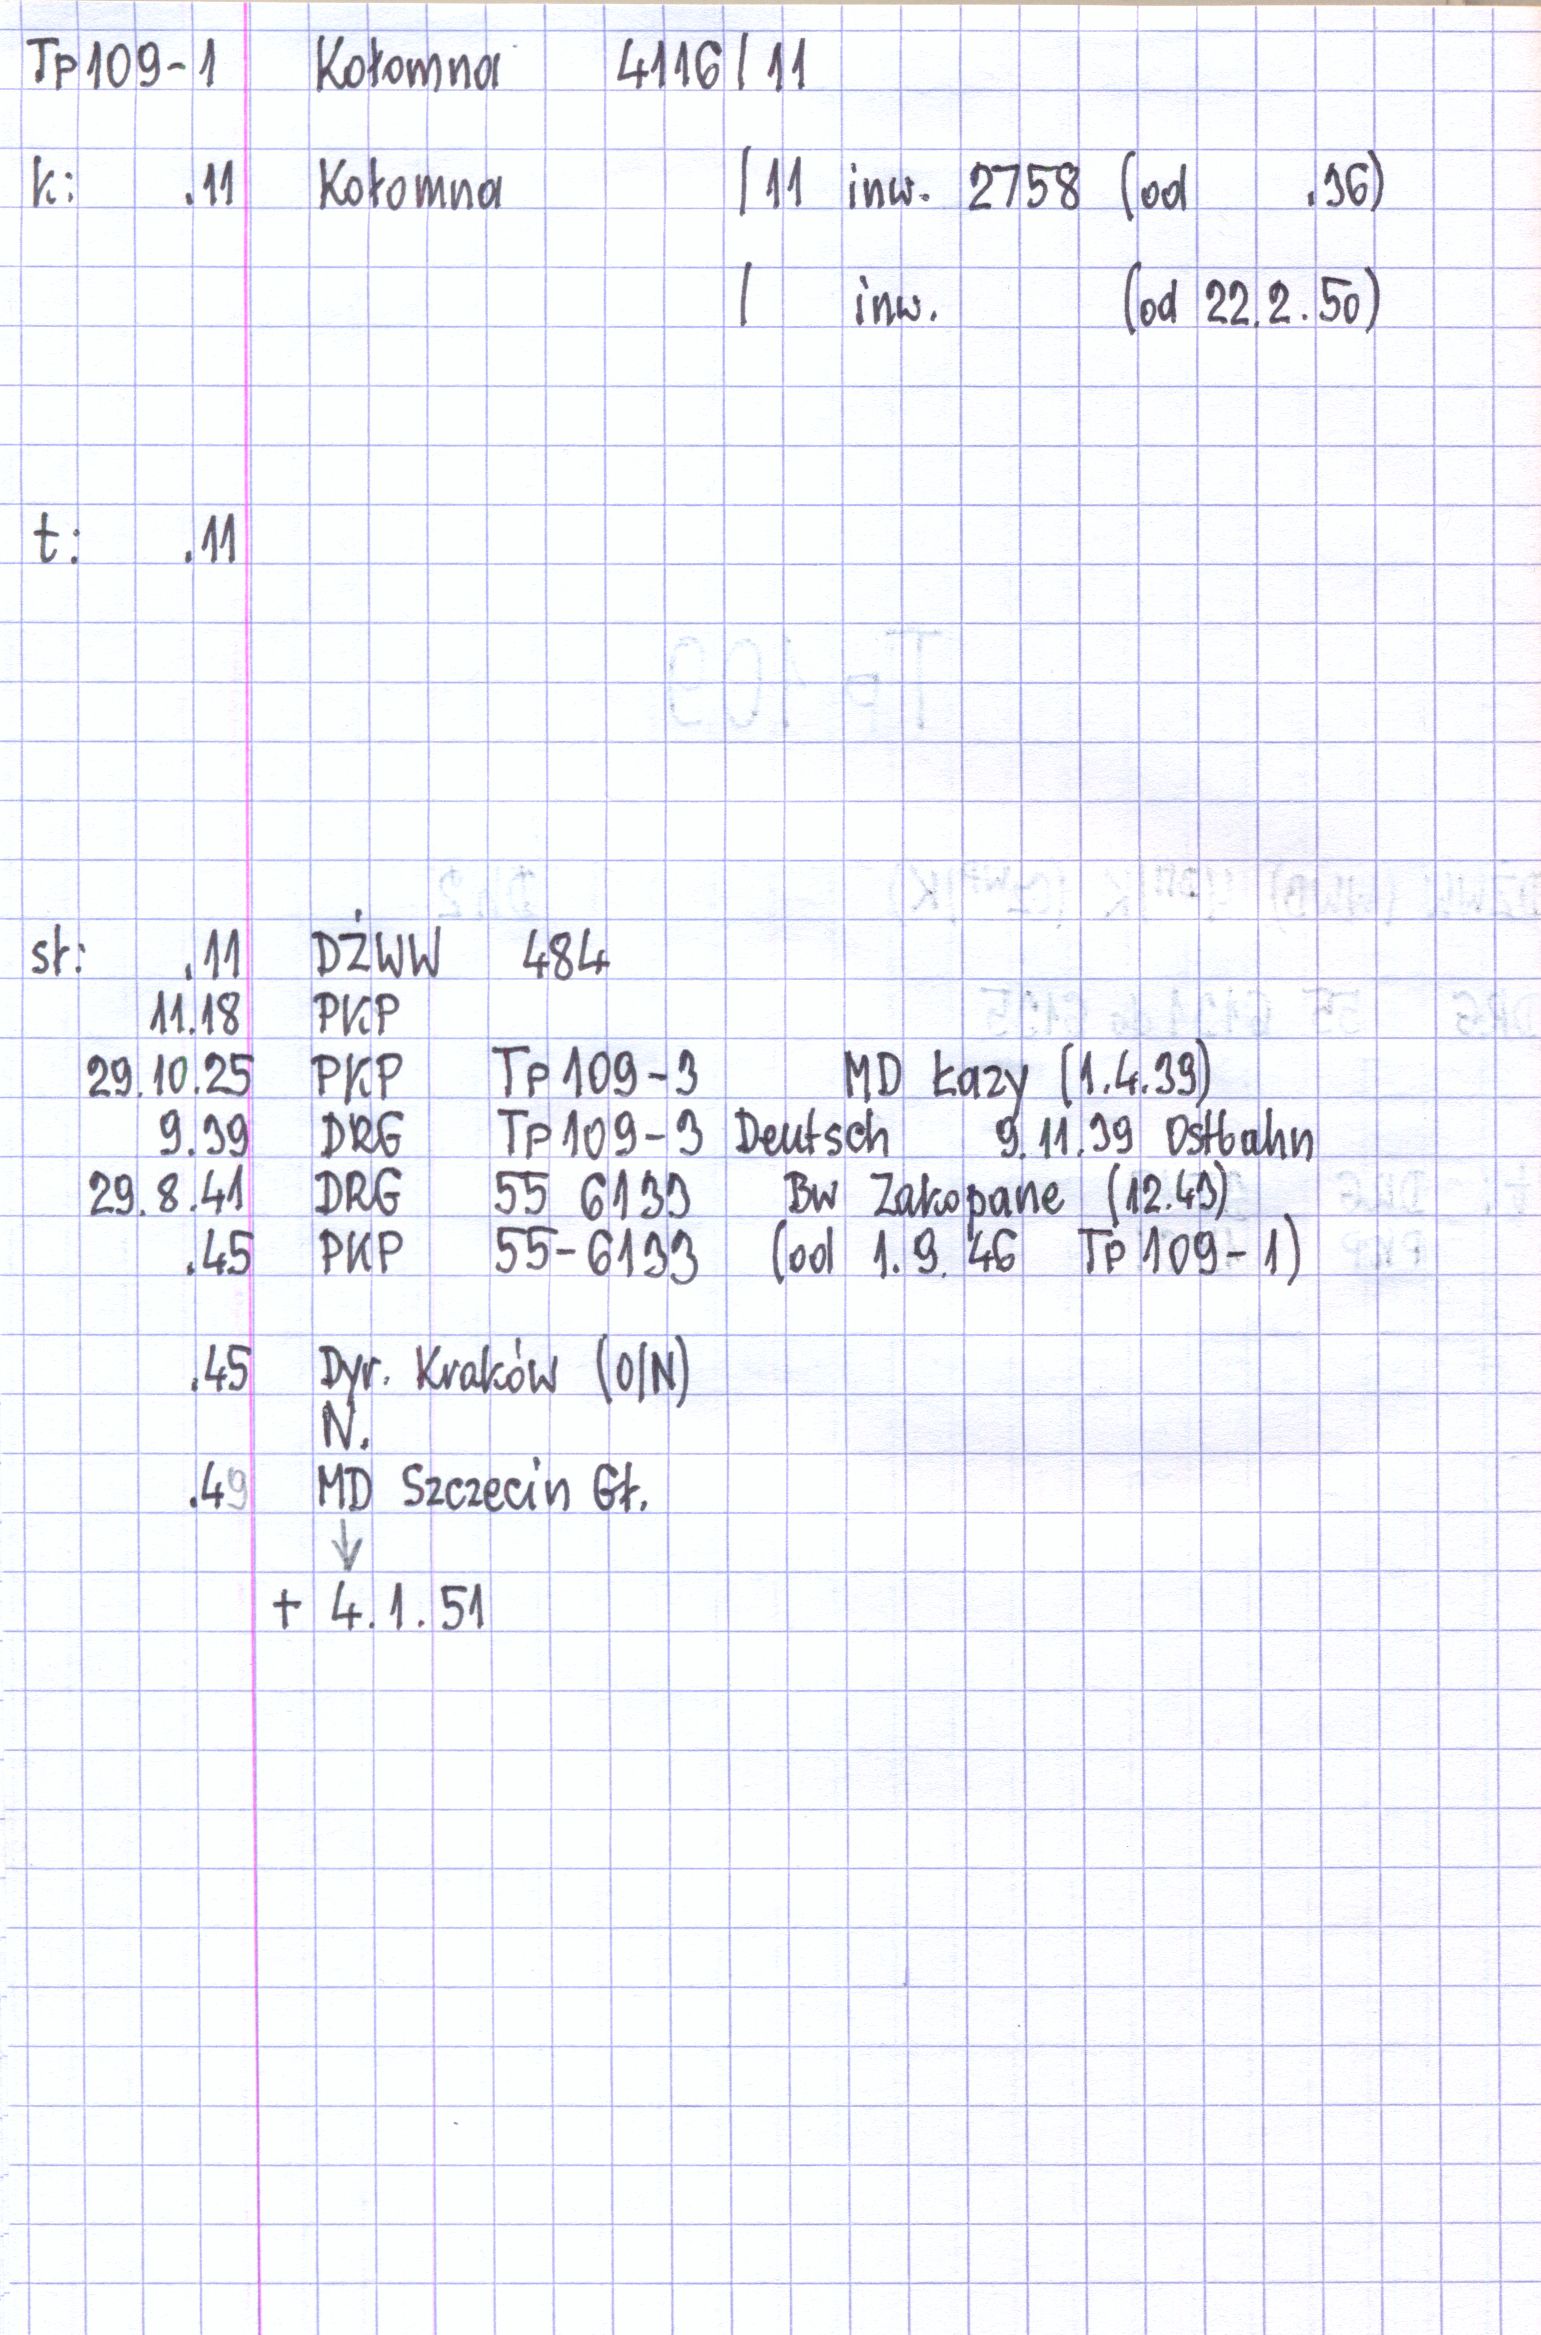 Tp109-1 Kołomna 4116/11
k: .11 Kołomna /11 inw. 2758 (od .36)
/ inw. (od 22.2.50)
t: .11
Tp 109
st: .11 DŻWW 484
11.18 PKP
29.10.25 PKP Tp109-3 MD Łazy (1.4.39)
9.39 DRG Tp109-3 Deutsch 9.11.39 Ostbahn
29.8.41 DRG 55 6133 Bw Zakopane (12.43)
.45 PKP 55-6133 (od 1.9.46 Tp109-1)
.45 Dyr. Kraków (O/N)
N.
.49 MD Szczecin Gł.
↓
+ 4.1.51